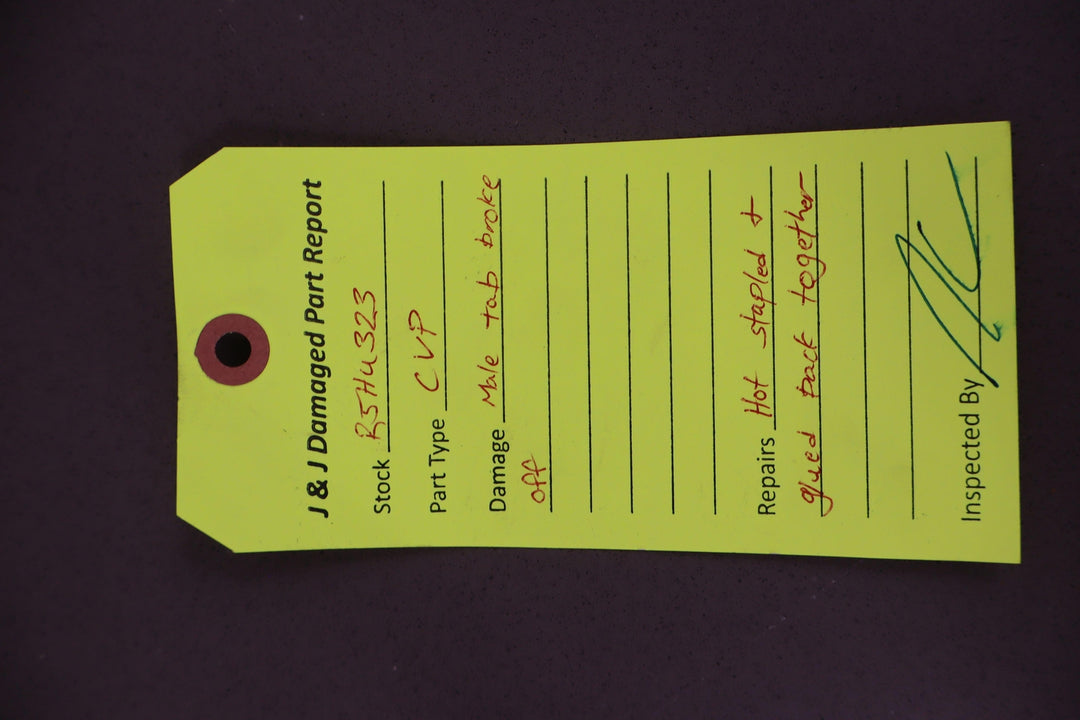 J & J Damaged Part Report
Stock R5HU323
Part Type CVP
Damage Male tab broke
off
Repairs Hot stapled +
glued back together
Inspected By